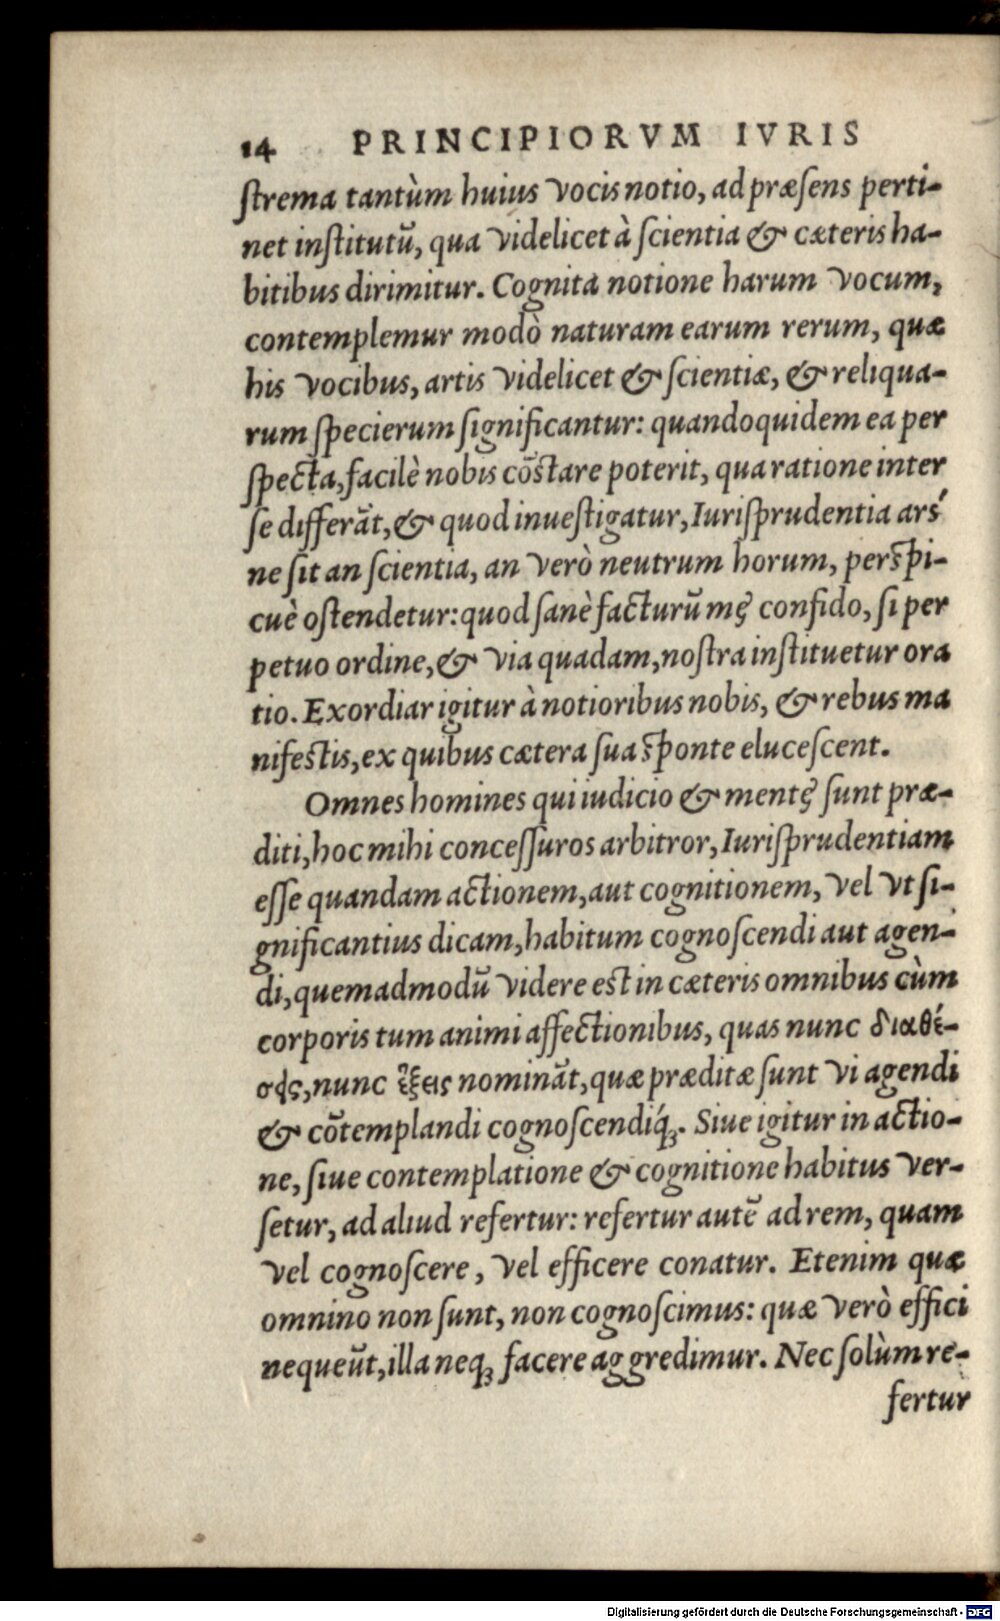 14 PRINCIPIORVM IVRIS
ſtrema tantùm huius vocis notio, ad præſens perti-
net inſtitutū, qua videlicet à ſcientia & cæteris ha-
bitibus dirimitur. Cognita notione harum vocum,
contemplemur modò naturam earum rerum, quæ
his vocibus, artis videlicet & ſcientiæ, & reliqua-
rum ſpecierum ſignificantur: quandoquidem ea per
ſpecta, facilè nobis cōſtare poterit, qua ratione inter
ſe differāt, & quod inueſtigatur, Iuriſprudentia ars
ne ſit an ſcientia, an verò neutrum horum, perſpi-
cuè oſtendetur: quod ſanè facturū mę confido, ſi per
petuo ordine, & via quadam, noſtra inſtituetur ora
tio. Exordiar igitur à notioribus nobis, & rebus ma
nifeſtis, ex quibus cætera ſua ſponte eluceſcent.
Omnes homines qui iudicio & mentę ſunt præ-
diti, hoc mihi conceſſuros arbitror, Iuriſprudentiam
eſſe quandam actionem, aut cognitionem, vel vt ſi-
gnificantius dicam, habitum cognoſcendi aut agen-
di, quemadmodū videre eſt in cæteris omnibus cùm
corporis tum animi affectionibus, quas nunc διαθέ-
σεις, nunc ἕξεις nominãt, quæ præditæ ſunt vi agendi
& cōtemplandi cognoſcendiq́ꝫ. Siue igitur in actio-
ne, ſiue contemplatione & cognitione habitus ver-
ſetur, ad aliud refertur: refertur autē ad rem, quam
vel cognoſcere, vel efficere conatur. Etenim quæ
omnino non ſunt, non cognoſcimus: quæ verò effici
nequeūt, illa neqꝫ facere aggredimur. Nec ſolùm re-
fertur
Digitalisierung gefördert durch die Deutsche Forschungsgemeinschaft - DFG